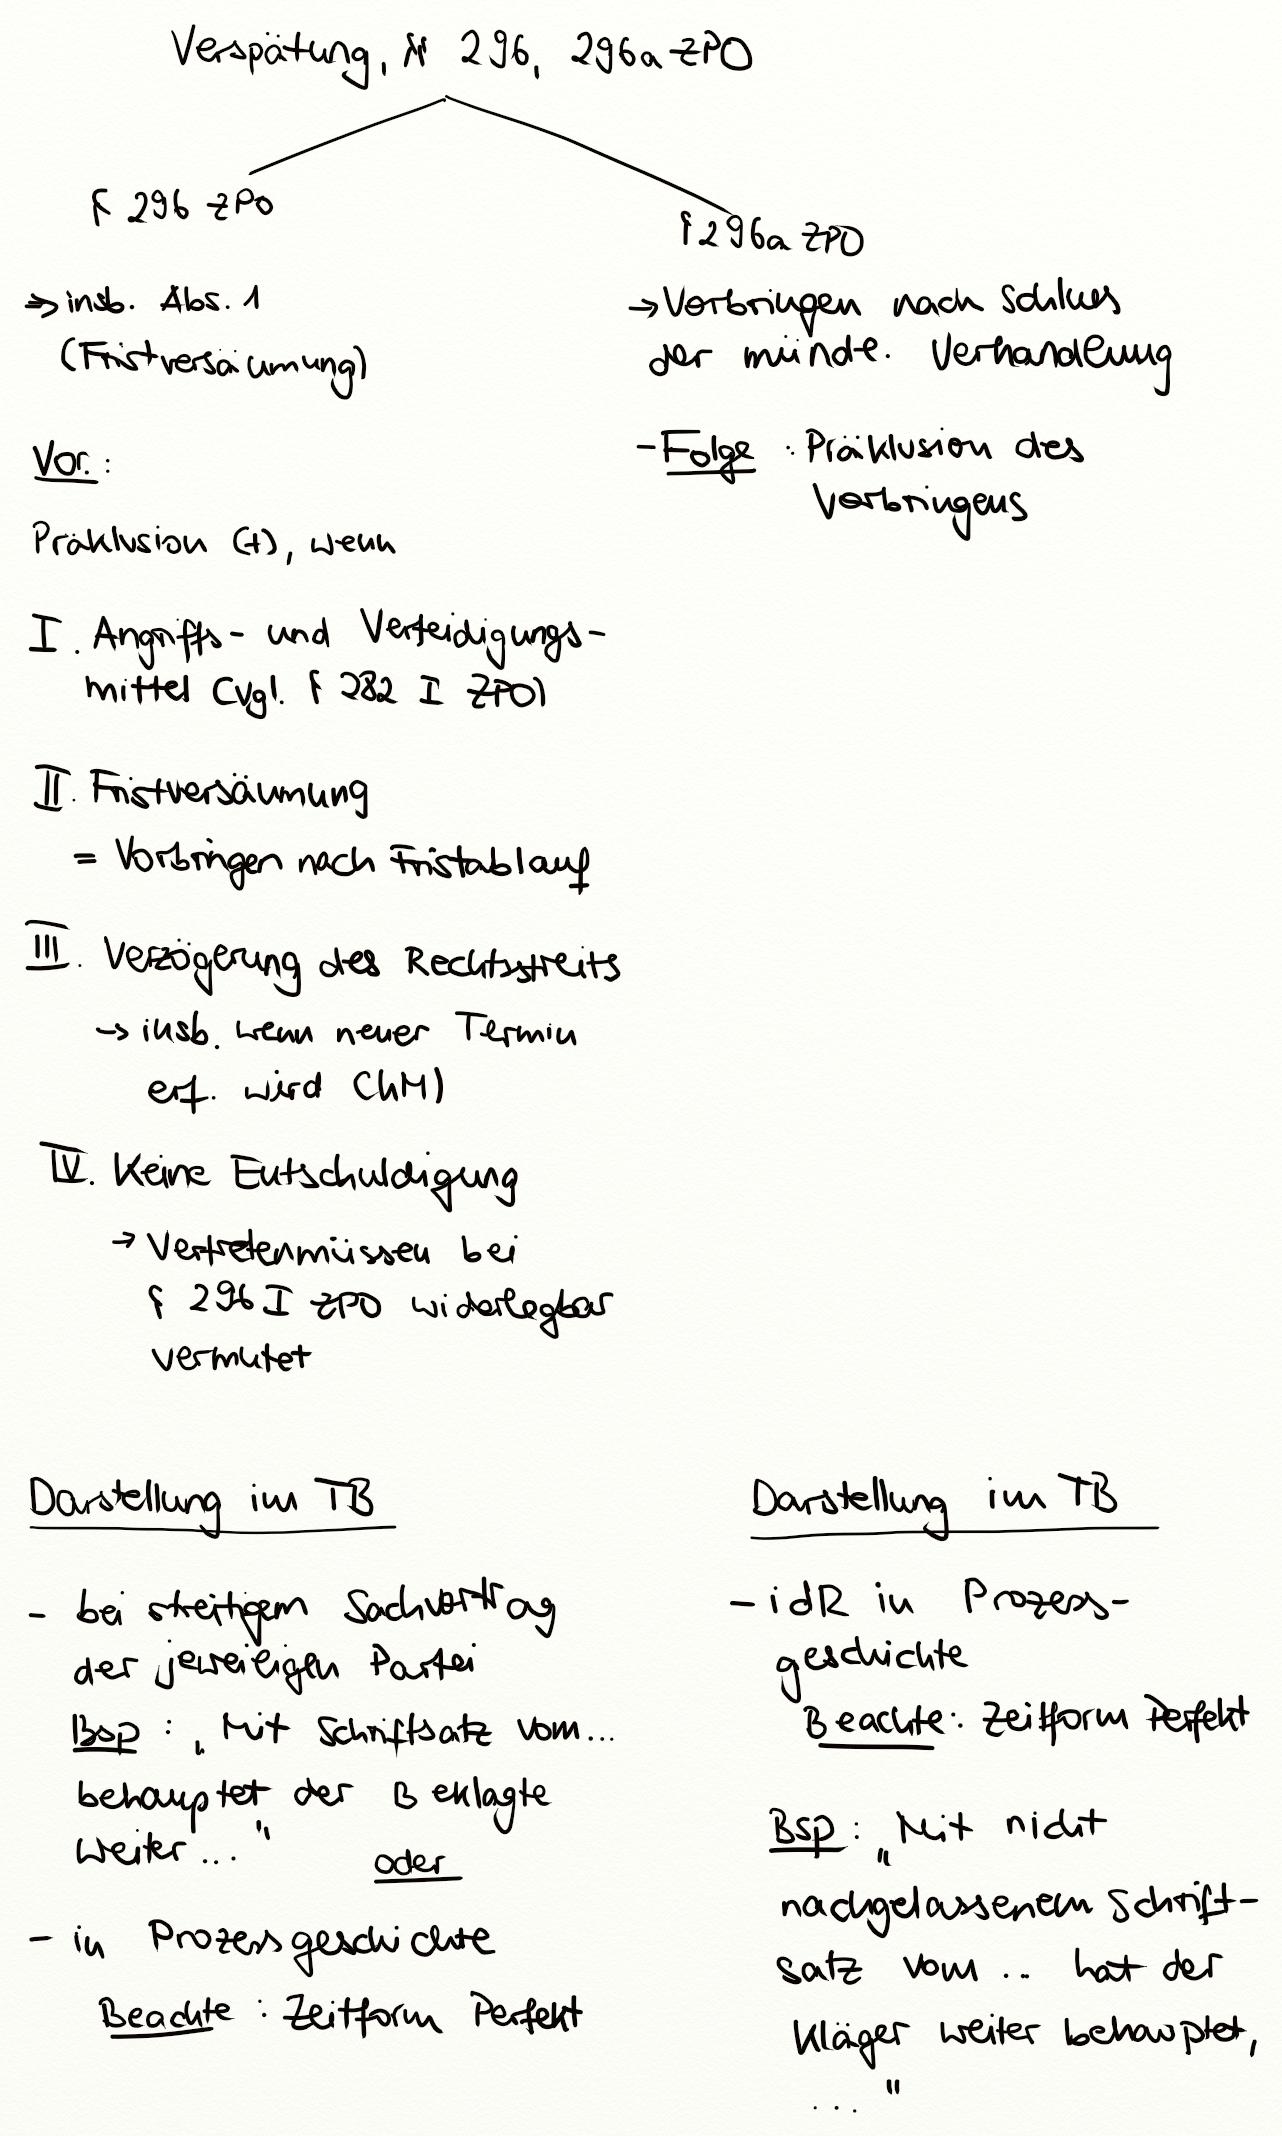 Verspätung, §§ 296, 296a ZPO
§ 296 ZPO
→ insb. Abs. 1
(Fristversäumung)
Vor.:
Präklusion (+), wenn
I. Angriffs- und Verteidigungs-
mittel (vgl. § 282 I ZPO)
II. Fristversäumung
= Vorbringen nach Fristablauf
III. Verzögerung des Rechtsstreits
→ insb. wenn neuer Termin
erf. wird (hM)
IV. Keine Entschuldigung
→ Vertretenmüssen bei
§ 296 I ZPO widerlegbar
vermutet
§ 296a ZPO
→ Vorbringen nach Schluss
der mündl. Verhandlung
- Folge: Präklusion des
Vorbringens
Darstellung im TB
- bei streitigem Sachvortrag
der jeweiligen Partei
Bsp: „Mit Schriftsatz vom...
behauptet der Beklagte
weiter..."
oder
- in Prozessgeschichte
Beachte: Zeitform Perfekt
Darstellung im TB
- idR in Prozess-
geschichte
Beachte: Zeitform Perfekt
Bsp: „Mit nicht
nachgelassenem Schrift-
satz vom ... hat der
Kläger weiter behauptet,
..."